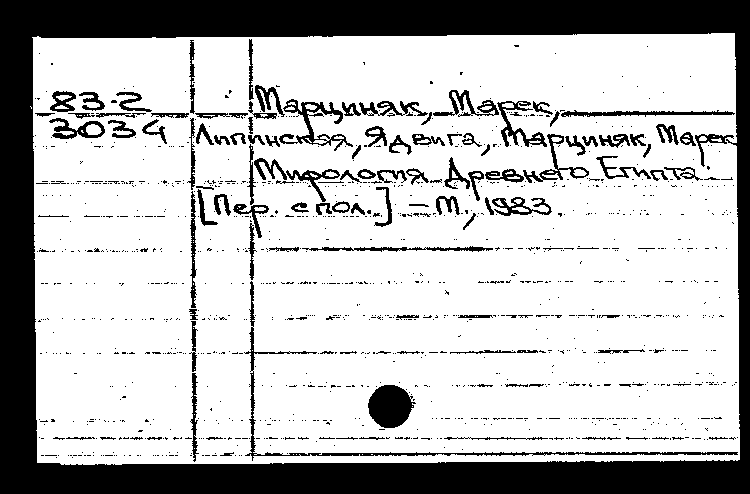 83-2 Марциняк, Марек,
3034 Липинская, Ядвига, Марциняк, Марек
Мифология Древнего Египта.
[Пер. с пол.] – М., 1983.